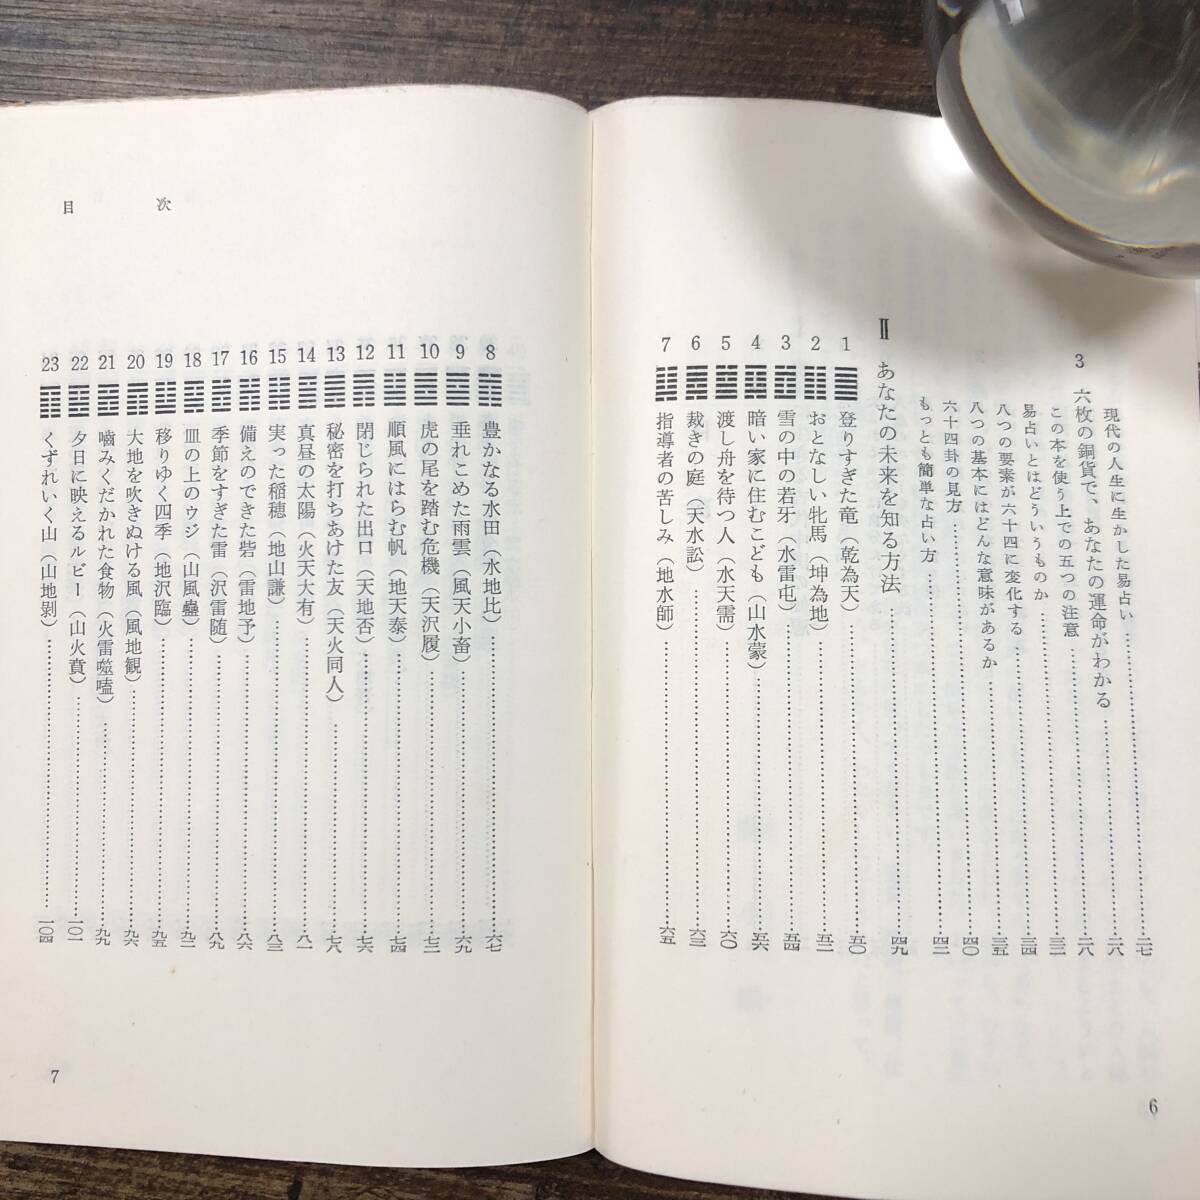 現代の人生に生かした易占い……二七
3 六枚の銅貨で、あなたの運命がわかる……二八
この本を使う上での五つの注意……二八
易占いとはどういうものか……三二
八つの要素が六十四に変化する……三四
八つの基本にはどんな意味があるか……三五
六十四卦の見方……四〇
もっとも簡単な占い方……四二
Ⅱ あなたの未来を知る方法……四九
1 登りすぎた竜（乾為天）……五〇
2 おとなしい牝馬（坤為地）……五二
3 雪の中の若牙（水雷屯）……五四
4 暗い家に住むこども（山水蒙）……五六
5 渡し舟を待つ人（水天需）……六〇
6 裁きの庭（天水訟）……六三
7 指導者の苦しみ（地水師）……六五
6
目次
8 豊かなる水田（水地比）……六七
9 垂れこめた雨雲（風天小畜）……六九
10 虎の尾を踏む危機（天沢履）……七二
11 順風にはらむ帆（地天泰）……七四
12 閉じられた出口（天地否）……七六
13 秘密を打ちあけた友（天火同人）……七八
14 真昼の太陽（火天大有）……八一
15 実った稲穂（地山謙）……八三
16 備えのできた砦（雷地予）……八六
17 季節をすぎた雷（沢雷随）……八九
18 皿の上のウジ（山風蠱）……九二
19 移りゆく四季（地沢臨）……九五
20 大地を吹きぬける風（風地観）……九六
21 噛みくだかれた食物（火雷噬嗑）……九九
22 夕日に映えるルビー（山火賁）……一〇一
23 くずれいく山（山地剝）……一〇四
7